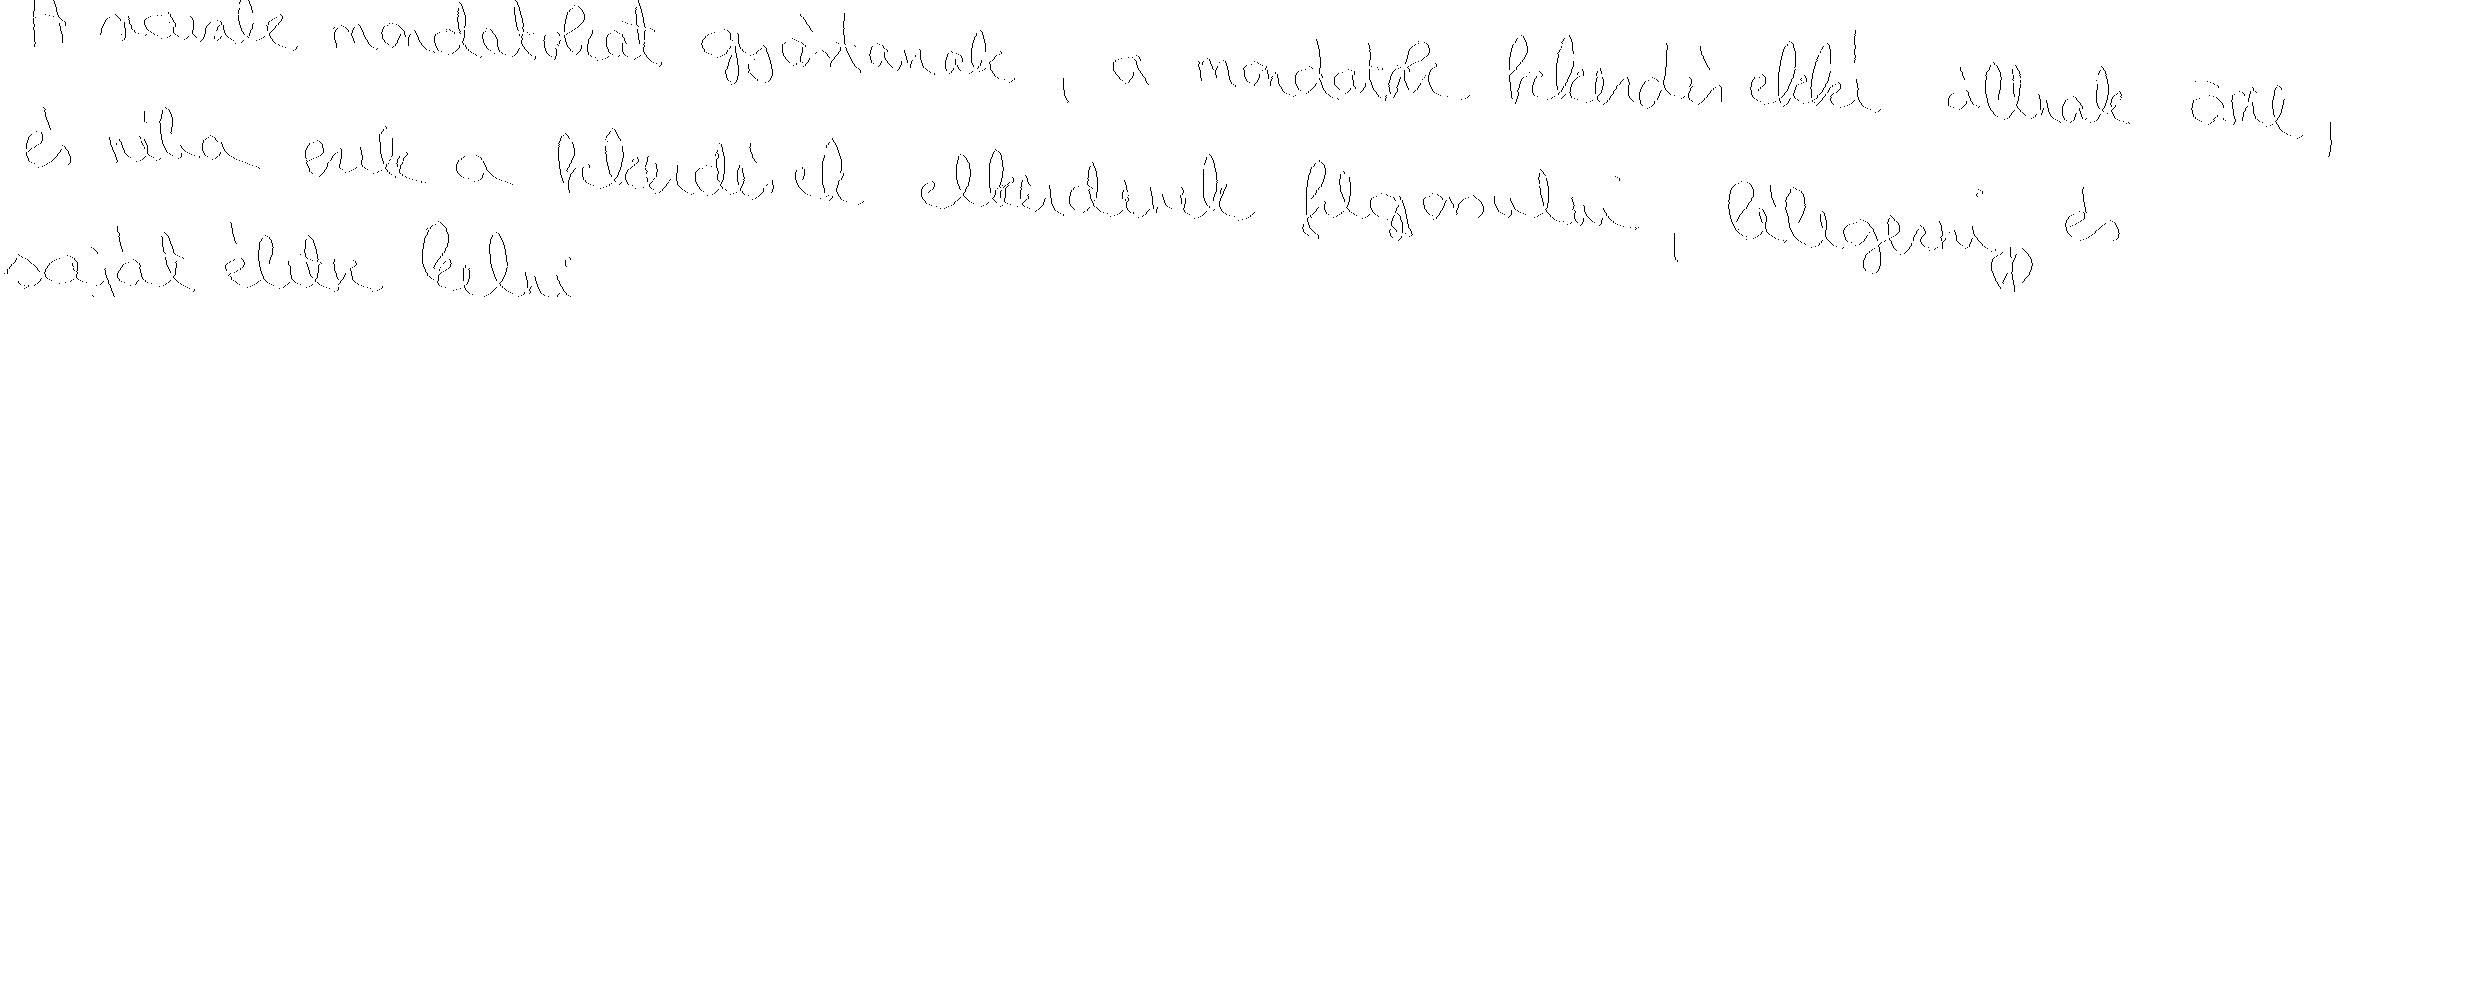 A szavak mondatokat gyártanak, a mondatok bekezdésekké állnak össze,
és néha ezek a bekezdések elkezdenek felgyorsulni, lélegezni, és
saját életre kelni